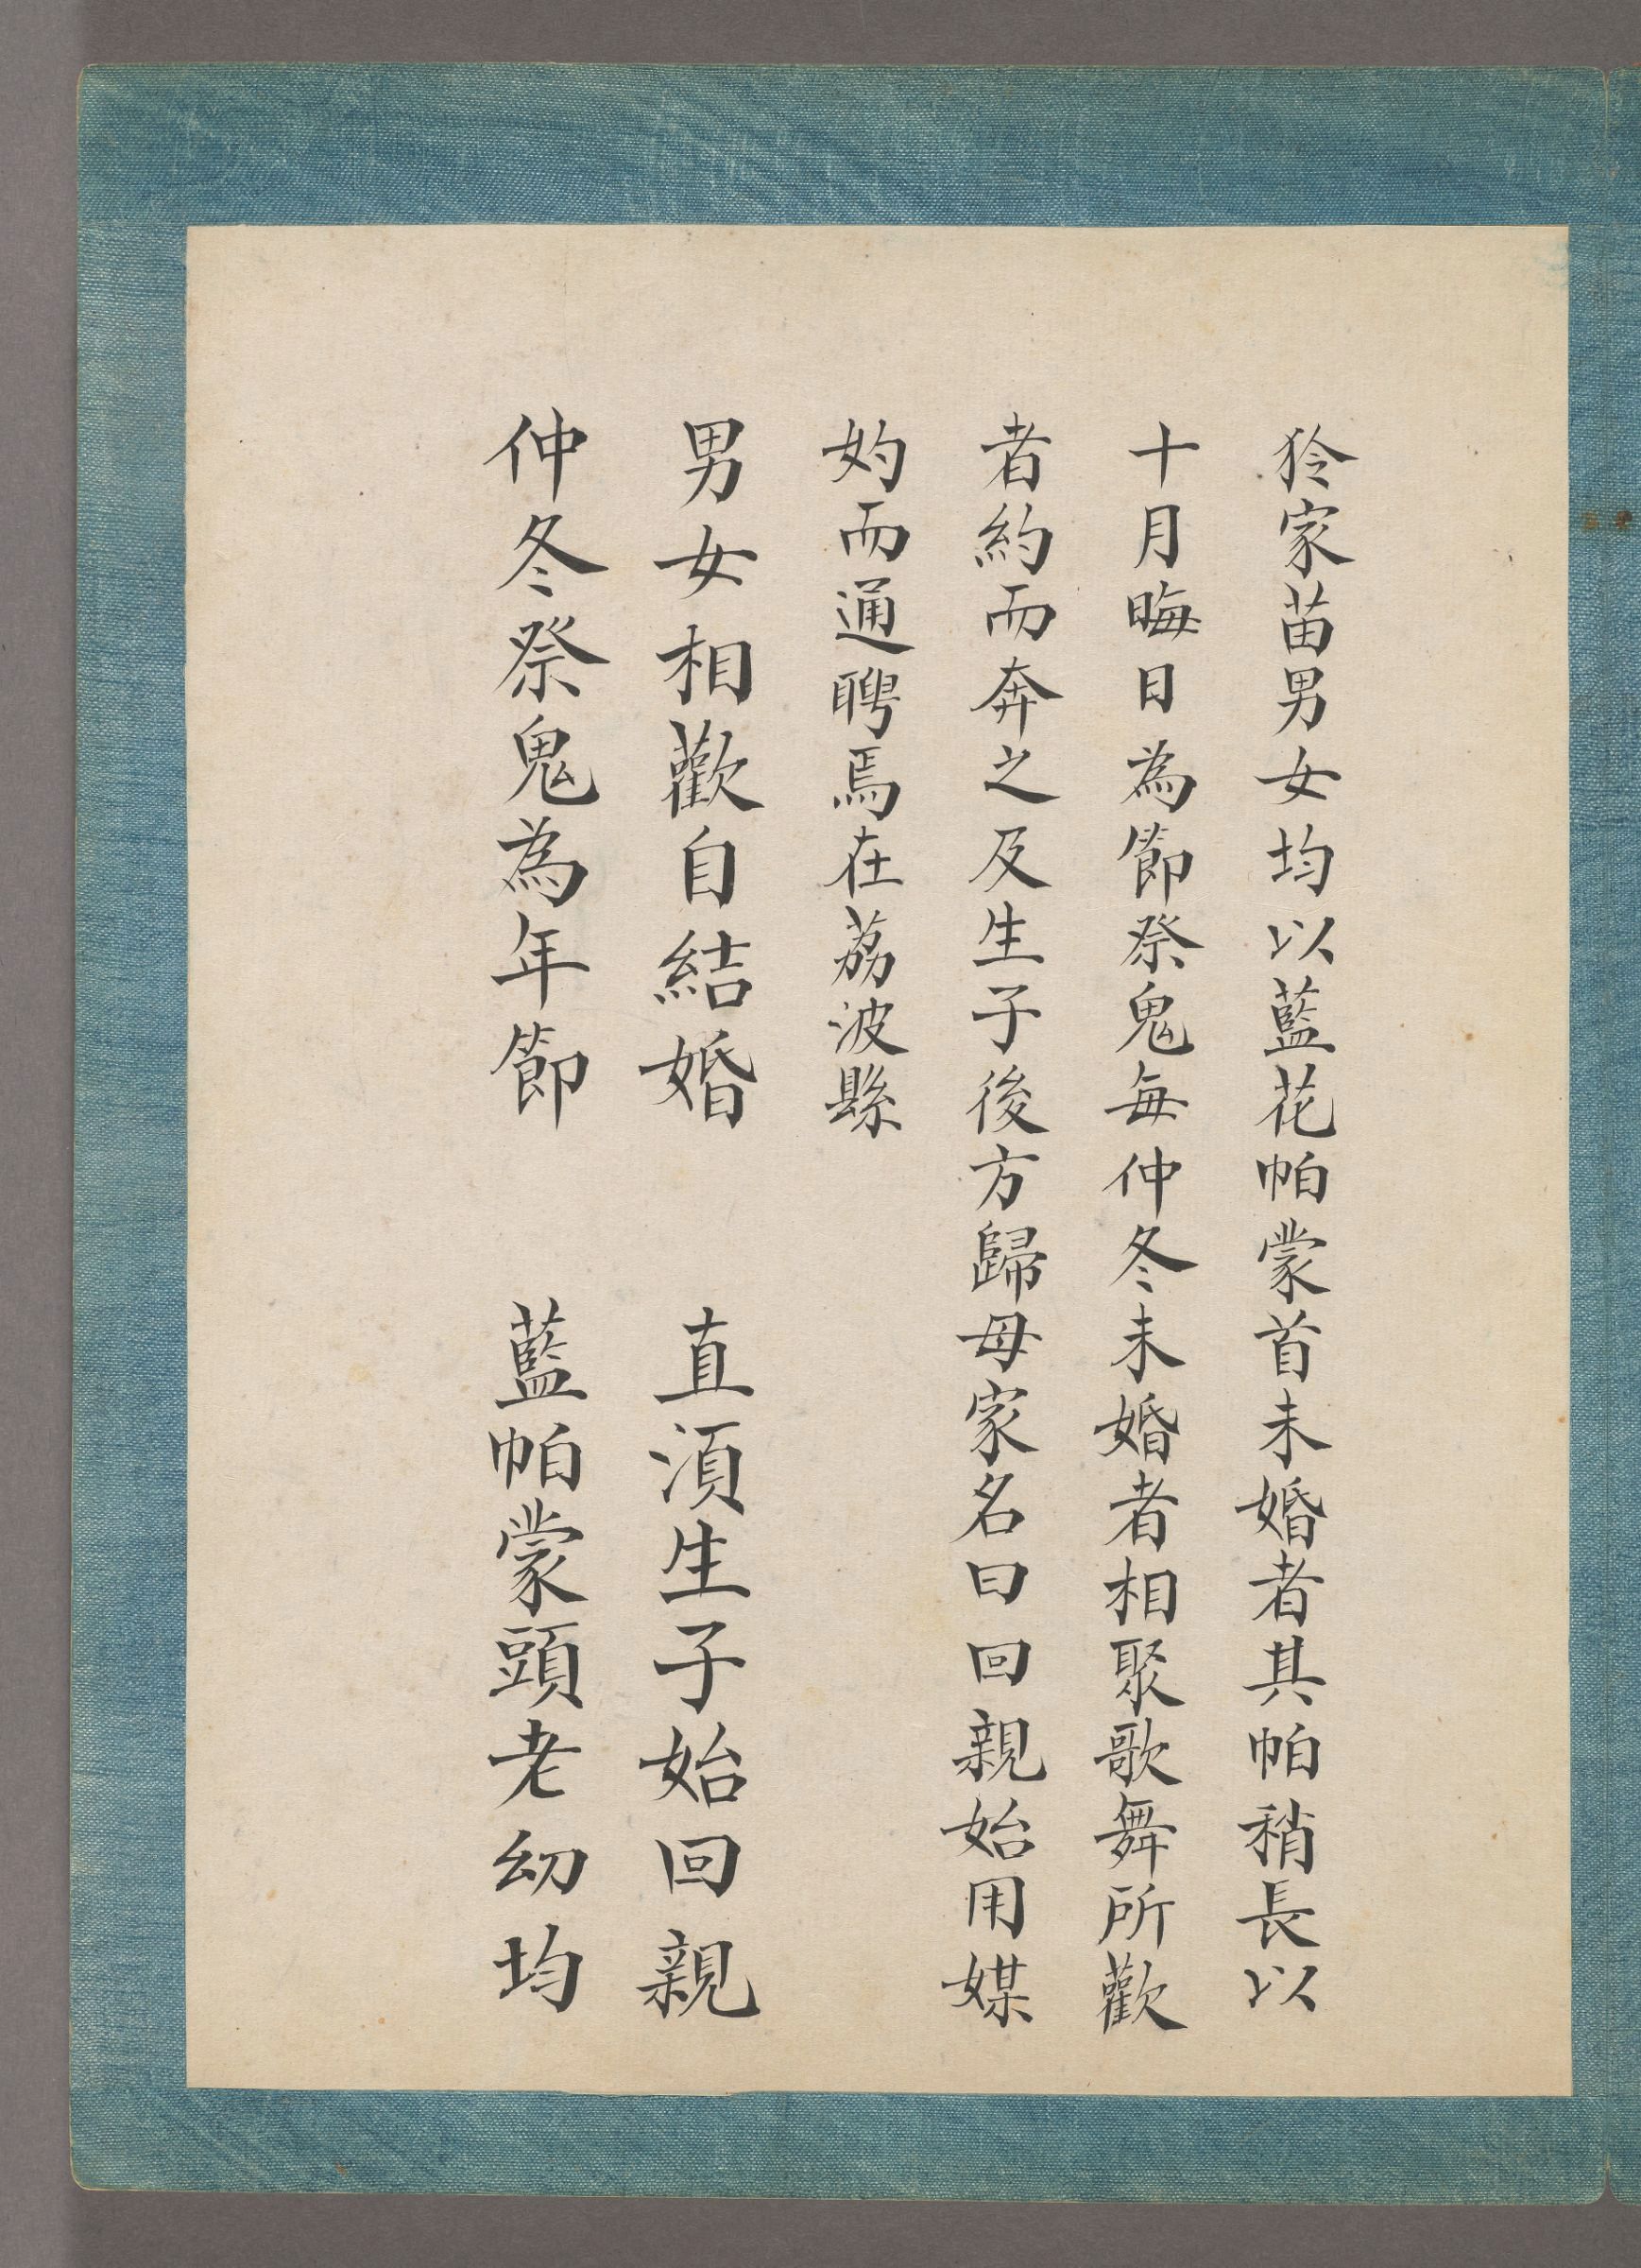 狑家苗男女均以藍花帕蒙首未婚者其帕稍長以
十月晦日為節祭鬼每仲冬未婚者相聚歌舞所歡
者約而奔之及生子後方歸母家名曰回親始用媒
妁而通聘焉在荔波縣
男女相歡自結婚　直須生子始回親
仲冬祭鬼為年節　藍帕蒙頭老幼均